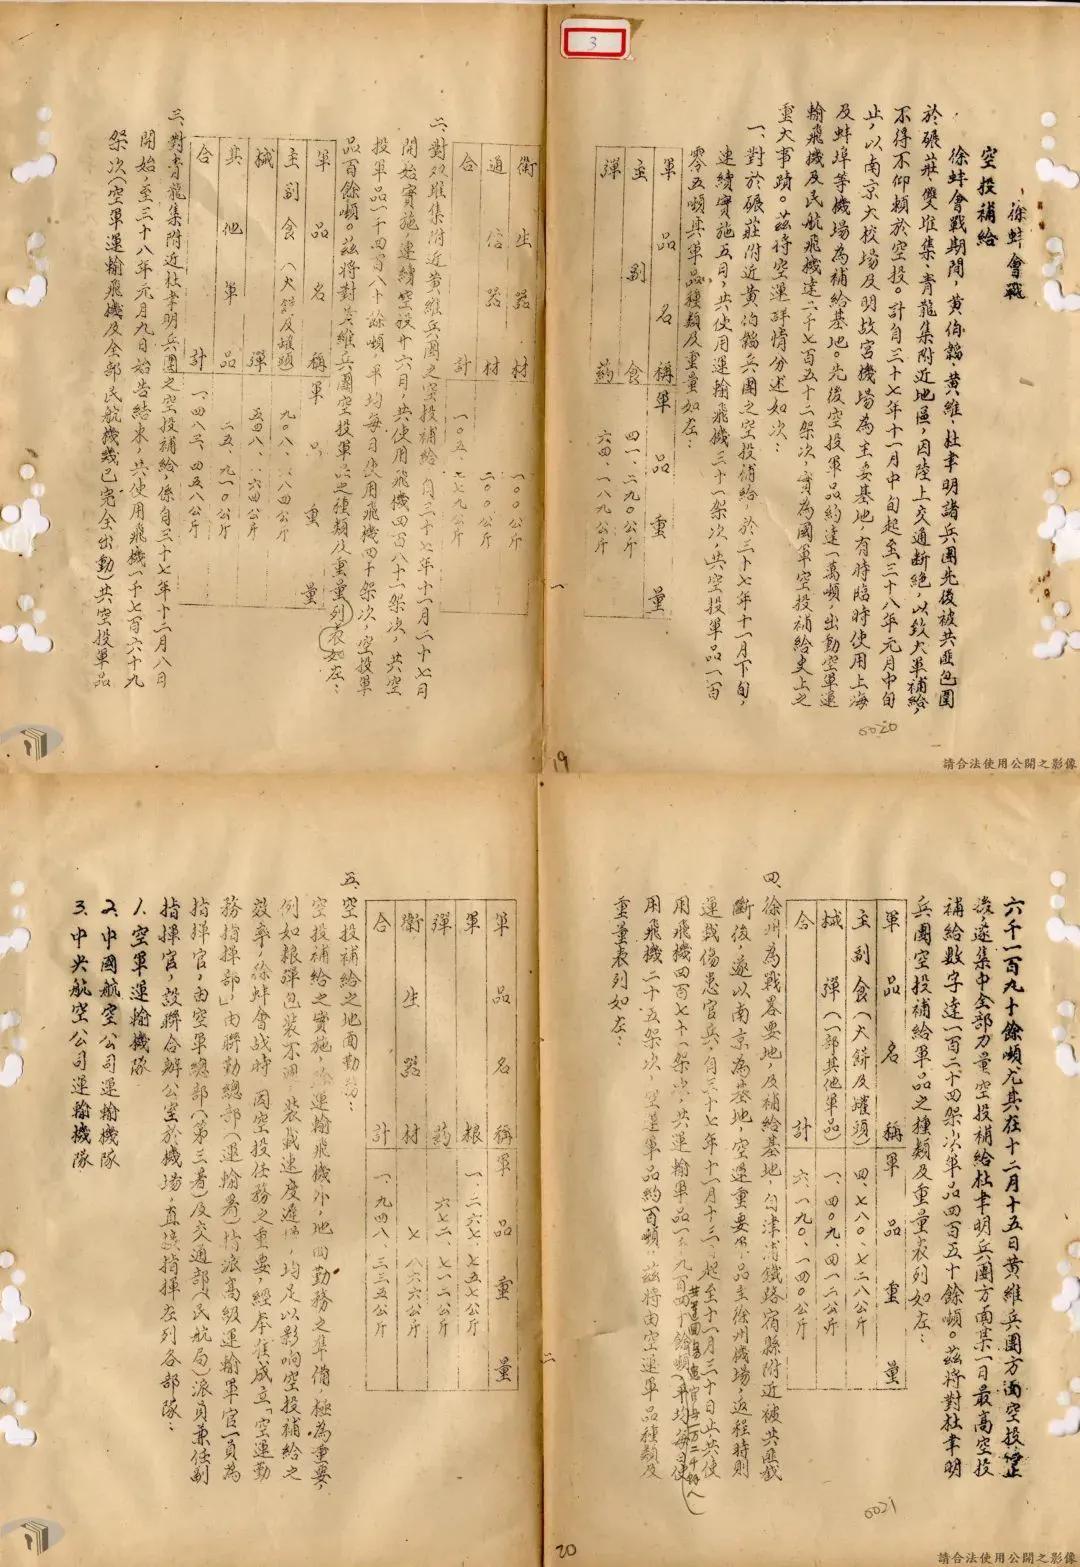 3
徐蚌會戰
空投補給
徐蚌會戰期間,黃伯韜、黃維、杜聿明諸兵團先後被共匪包圍
於碾莊、雙堆集、青龍集附近地區,因陸上交通斷絕,以致大軍補給,
不得不仰賴於空投。計自三十七年十一月中旬起至三十八年元月中旬
止,以南京大校場及明故宮機場為主要基地,有時臨時使用上海
及蚌埠等機場為補給基地。先後空投軍品約達一萬噸,出動空軍運
輸飛機及民航飛機達二千七百五十二架次,實為國軍空投補給史上之
重大事蹟。茲將空運詳情分述如次:
一、對於碾莊附近黃伯韜兵團之空投補給,於三十七年十一月下旬,
連續實施五日,共使用運輸飛機三十一架次,共空投軍品一百
零五噸其軍品種類及重量如左:
軍品名稱 軍品重量
主副食 四一、二九〇公斤
彈葯 六四、一八九公斤
衛生器材 一〇〇公斤
通信器材 二〇〇公斤
合計 一〇五、七七九公斤
二、對双堆集附近黃維兵團之空投補給,自三十七年十一月二十七日
開始實施連續空投廿六月,共使用飛機四百八十二架次,共空
投軍品一千四百八十餘噸,平均每日使用飛機四十架次,空投軍
品百餘噸。茲將對黃維兵團空投軍品之種類及重量列表如左:
軍品名稱 軍品重量
主副食(大餅及罐頭) 九〇八、八四公斤
械彈 五四八、六四公斤
其他軍品 二五、九一〇公斤
合計 一、四八三、四五八公斤
三、對青龍集附近杜聿明兵團之空投補給,係自三十七年十二月八日
開始,至三十八年元月九日始告結束,共使用飛機一千七百六十九
架次(空軍運輸飛機及全部民航機幾已完全出動)共空投軍品
一
0020
19
請合法使用公開之影像
六千一百九十餘噸,尤其在十二月十五日黃維兵團方面空投停止
後,遂集中全部力量空投補給杜聿明兵團方面某一日最高空投
補給數字達一百二十四架次軍品四百五十餘噸。茲將對杜聿明
兵團空投補給軍品之種類及重量表列如左:
軍品名稱 軍品重量
主副食(大餅及罐頭) 四、七八〇、七二八公斤
械彈(一部其他軍品) 一、四〇九、四一二公斤
合計 六、一九〇、一四〇公斤
四、徐州為戰畧要地,及補給基地,自津浦鐵路宿縣附近被共匪截
斷後,遂以南京為基地,空運重要軍品至徐州機場,返程時則
運載傷患官兵,自三十七年十一月十三日起至十一月三十日止共使
用飛機四百七十一架次,共運輸軍品一千九百四十餘噸(平均每日使
共運回傷患官兵一万二千餘人
用飛機二十五架次,空運軍品約百噸),茲將由空運軍品種類及
重量表列如左:
軍品名稱 軍品重量
軍粮 一、二六七、七五七公斤
彈葯 六七二、七一二公斤
衛生器材 七、八六六公斤
合計 一、九四八、三三五公斤
五、空投補給之地面勤務:
空投補給之實施,除運輸飛機外,地面勤務之準備,極為重要,
例如粮彈包裝不週,裝載速度遲慢,均足以影响空投補給之
效率,徐蚌會战時,因空投任務之重要,經奉准成立「空運勤
務指揮部」由聯勤總部(運輸署)特派高級運輸軍官一員為
指揮官,由空軍總部(第三署)及交通部(民航局)派員兼任副
指揮官,設聯合辦公室於機場,直接指揮左列各部隊:
1.空軍運輸機隊
2.中國航空公司運輸機隊
3.中央航空公司運輸機隊
二
0021
20
請合法使用公開之影像